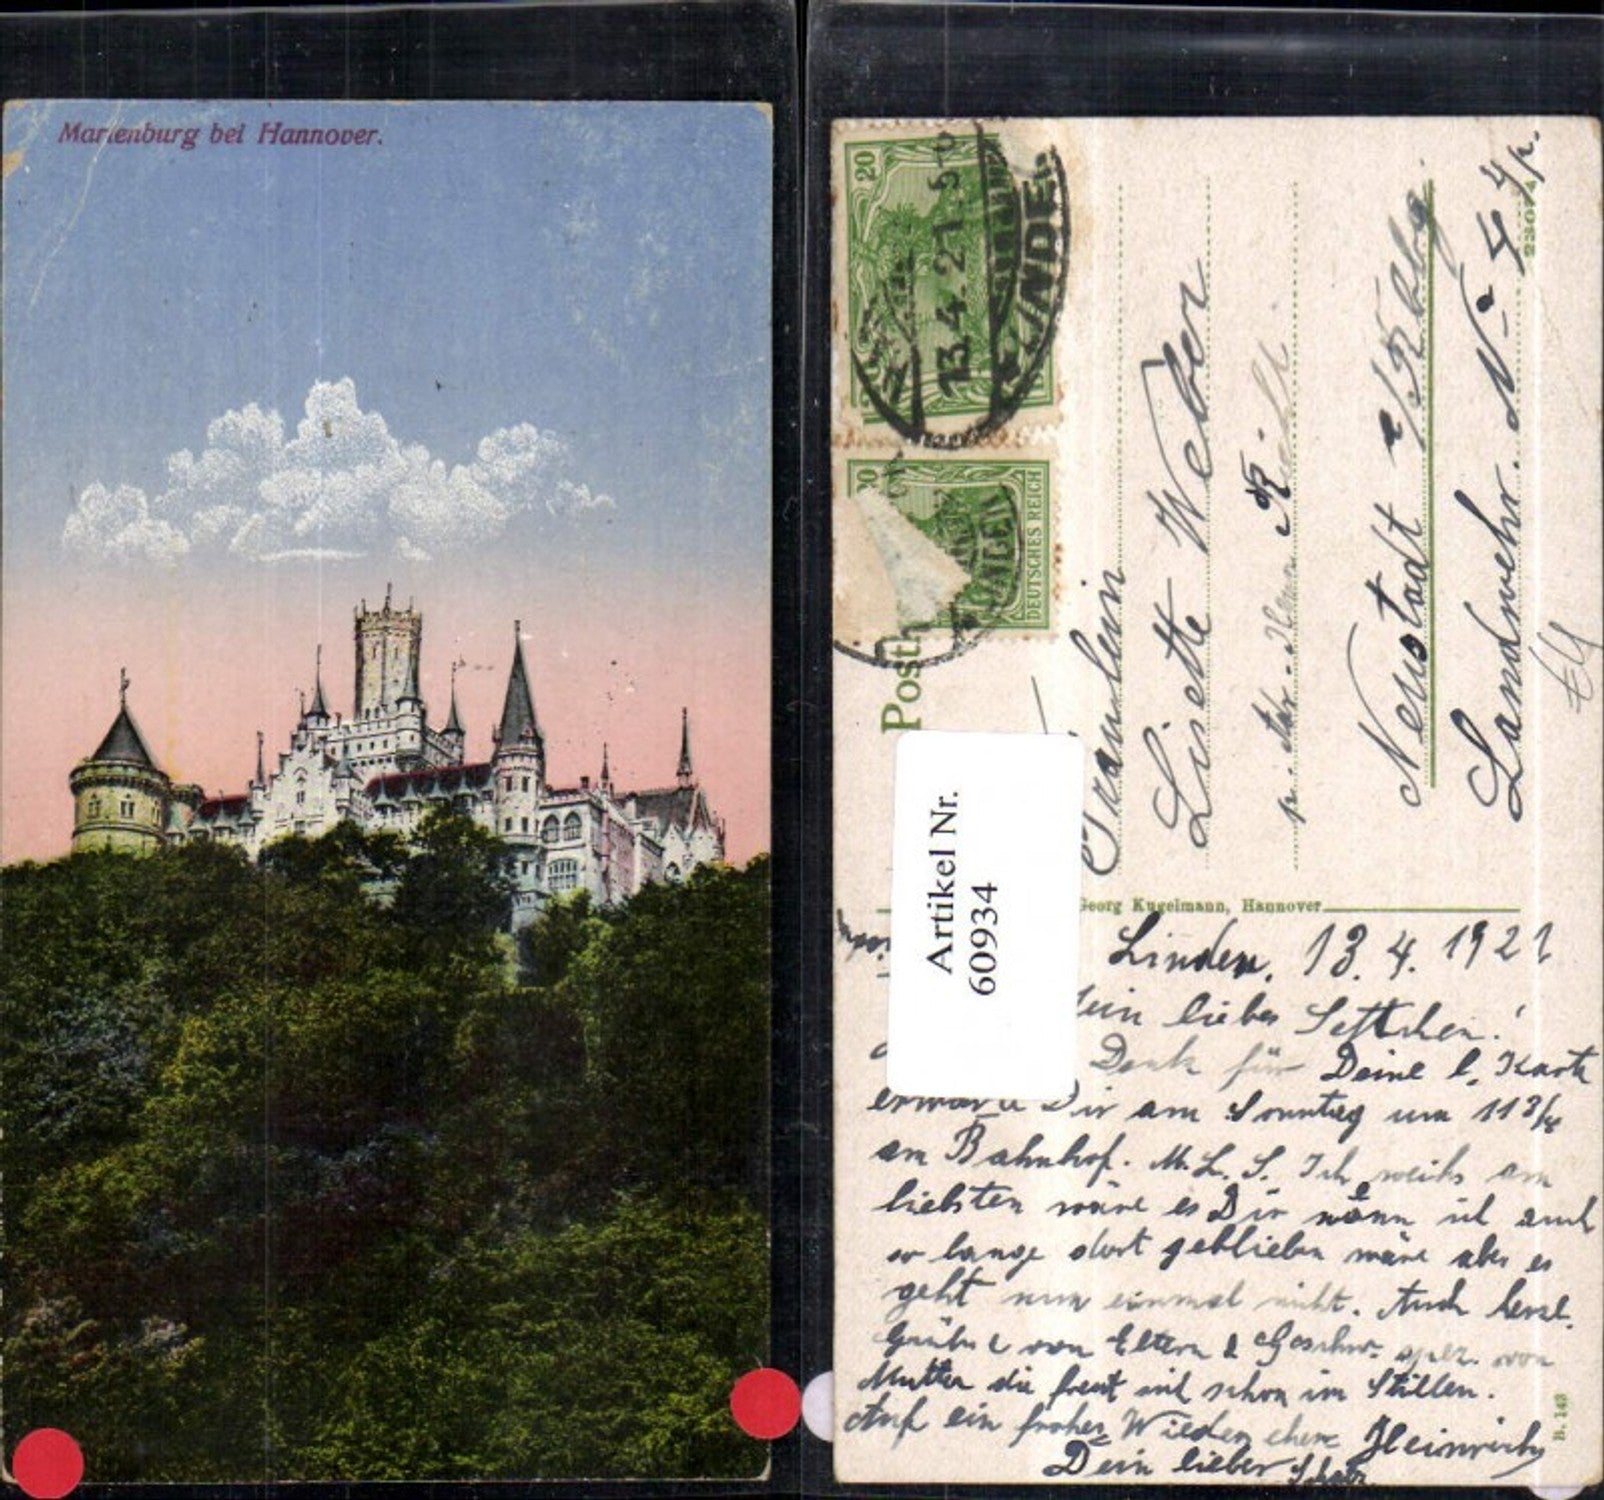 Marienburg bei Hannover.
20
13.4.21.5-6
LINDEN
20
DEUTSCHES REICH
Postk
Fräulein
Lisette Weber
Neustadt a/Rübbg.
Landwehr. No 44 p.
23607
Artikel Nr.
60934
Georg Kugelmann, Hannover
Linden, 13. 4. 1921
ein liebes Settchen!
Dank für Deine l. Karte
erwarte Dir am Sonntag um 11 3/4
am Bahnhof. M. L. S. Ich weihs am
liebsten wäre es Dir wenn ich auch
so lange dort geblieben wäre aber es
geht nun einmal nicht. Auch herzl.
Grühse von Eltern & Geschw. spez. von
Mutter die freut sich schon im Stillen.
Auf ein frohes Wiedersehen Heinrich
Dein lieber Schatz
B. 143